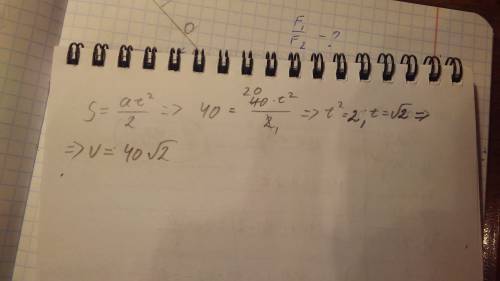 O
F₁/F₂ = ?
S = at²/2 => 40 = 20 40·t²/2 1 => t² = 2, t = √2 =>
=> v = 40√2